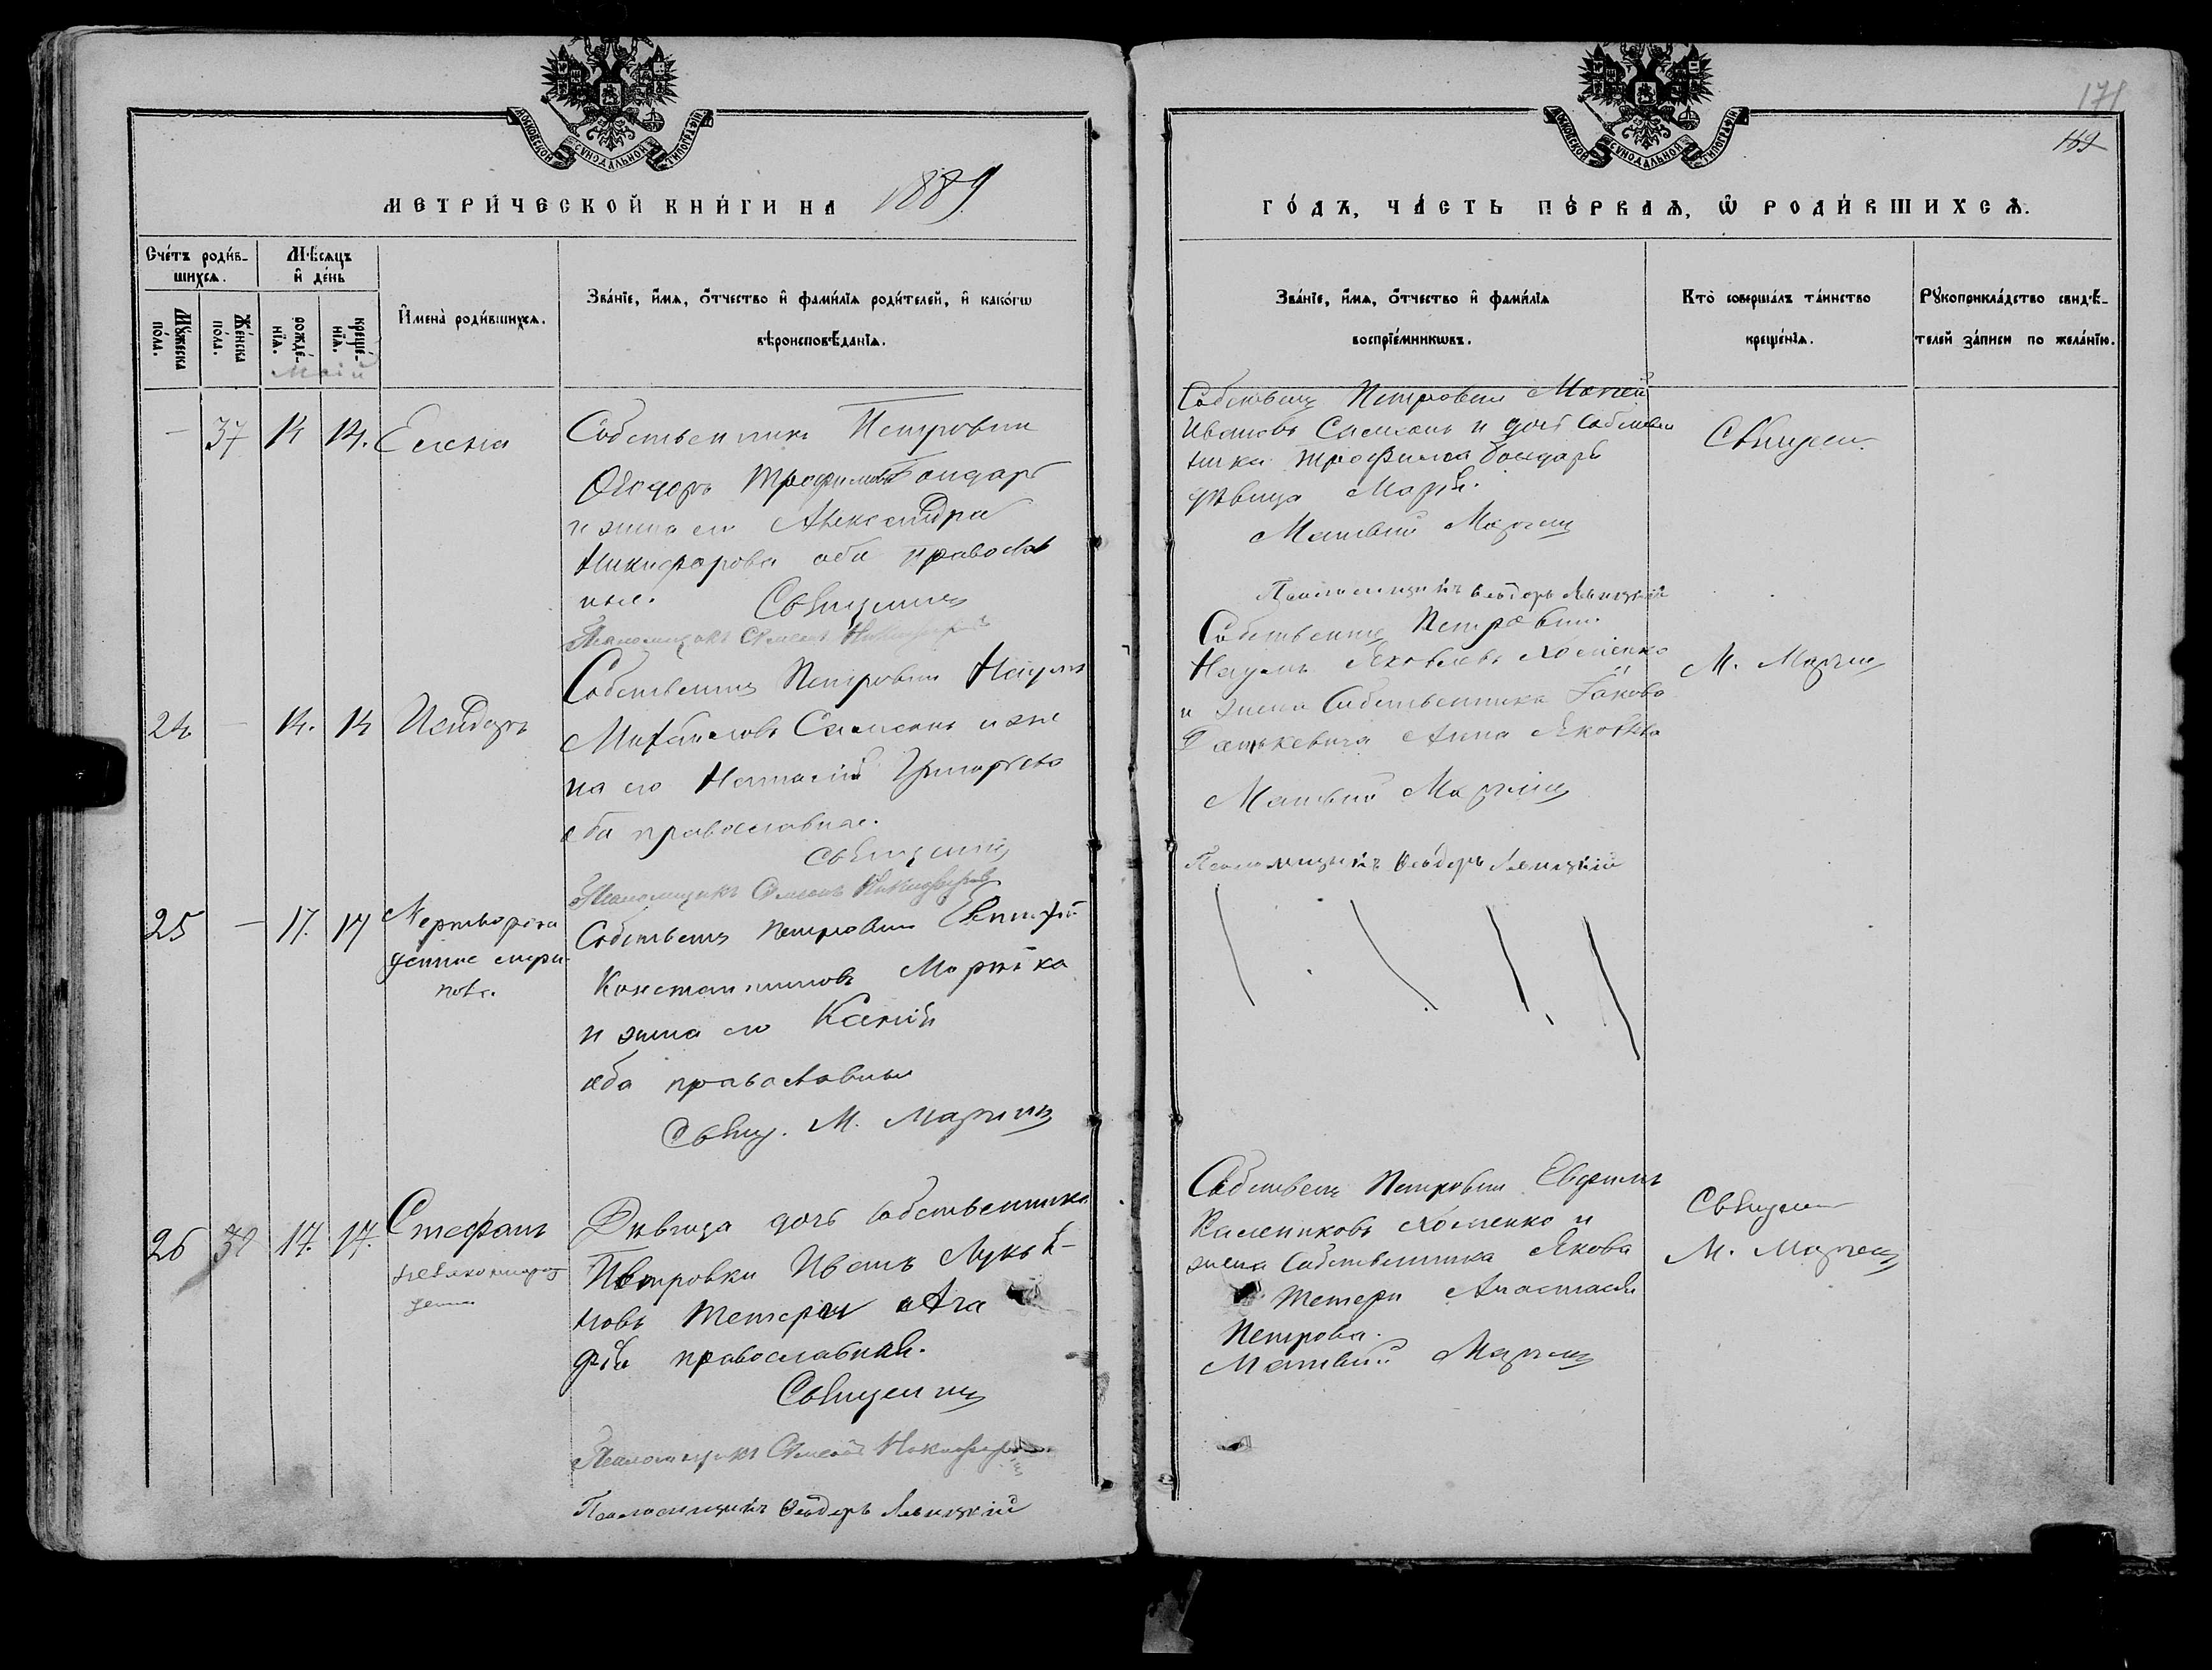 171
169
МОСКОВСКОЙ СѴНОДАЛЬНОЙ ТИПОГРАФІИ
МЕТРИ́ЧЕСКОЙ КНИ́ГИ НА 1889
Сче́тъ роди́в-
шихсѧ.
Мѣ́сѧцъ
и҆ де́нь
Мꙋ́жеска
по́ла.
Же́нска
по́ла.
рожде́-
нїѧ.
креще́-
нїѧ.
Маій
И҆мена̀ роди́вшихсѧ.
Зва́нїе, и҆́мѧ, ѻ҆́тчество и҆ фами́лїѧ роди́телей, и҆ како́гѡ
вѣроисповѣ́данїѧ.
— 37 14 14. Елена
Собственникъ Петровки
Ѳеодоръ Трофимовъ Бондарь
и жена его Александра
Никифорова оба православ
ные. Священникъ
Псаломщикъ Симеонъ Никифоровъ
24 — 14. 14 Исидоръ
Собственникъ Петровки Наумъ
Михайловъ Самсонъ и же
на его Наталія Григорьева
оба православные.
Священникъ
Псаломщикъ Симеонъ Никифоровъ
25 — 17. 17 Мертворож
денные
Собственникъ Петровки
Константиновъ
и жена его Ксенія
оба православные
Свящ. М.
26 38 17. 17. Стефанъ
незаконнорож
денный
Дѣвица дочь собственника
Петровки Иванъ Лукья-
новъ Тетери Ага
фія православная.
Священникъ
Псаломщикъ Симеонъ Никифоровъ
Псаломщикъ Ѳеодоръ Левицкій
МОСКОВСКОЙ СѴНОДАЛЬНОЙ ТИПОГРАФІИ
ГО́ДЪ, ЧА́СТЬ ПЕ́РВАѦ, Ѽ РОДИ́ВШИХСѦ.
Зва́нїе, и҆́мѧ, ѻ҆́тчество и҆ фами́лїѧ
воспрїе́мникѡвъ.
Кто̀ соверша́лъ та́инство
креще́нїѧ.
Рꙋкоприкла́дство свидѣ́-
телей за́писи по жела́нїю.
Собственникъ Петровки
Ивановъ Самсонъ и дочь собствен
ника Трофима Бондаръ
дѣвица Марія.
Матвѣй
Псаломщикъ Ѳеодоръ Левицкій
Священ.
Собственникъ Петровки
Наумъ Яковлевъ Хоменко
и жена Собственника Іакова
Анна Яковлева
Матвѣй
Псаломщикъ Ѳеодоръ Левицкій
М.
Собственникъ Петровки Евфимъ
Калениковъ Хоменко и
жена Собственника Якова
Тетери Анастасія
Петрова.
Матвѣй
Священ
М.